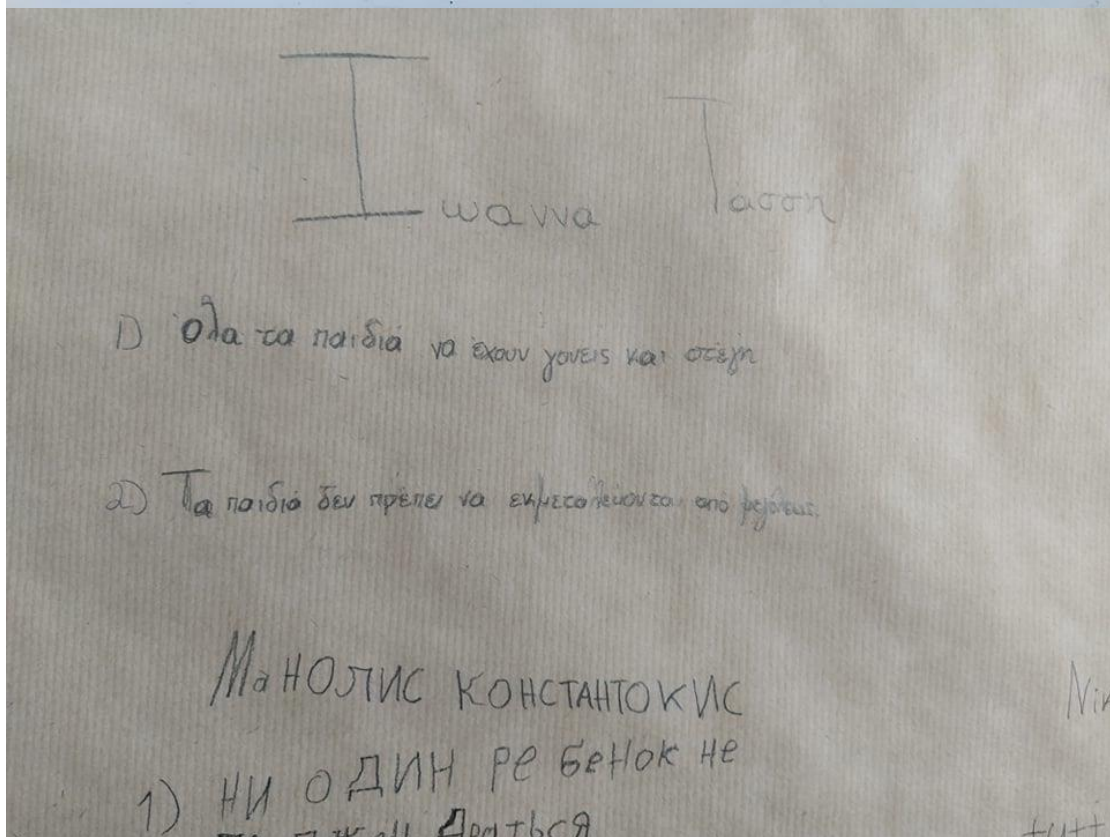 Ιωαννα Τασση
1) Όλα τα παιδιά να έχουν γονεις και στέγη
2) Τα παιδιά δεν πρέπει να εκμεταλεύονται από
Манолис Константокис
Nik
1) НИ ОДИН РебеНок Не
Драться